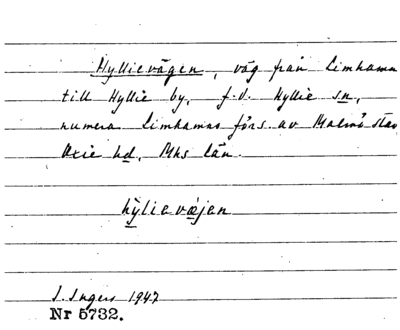 Hyllievägen, väg från Limhamn
till Hyllie by, f.d. Hyllie sn,
numera Limhamns förs. av Malmö stad
Oxie hd, Mhs län.
hylievæjen
I. Ingers 1947
Nr 5732.